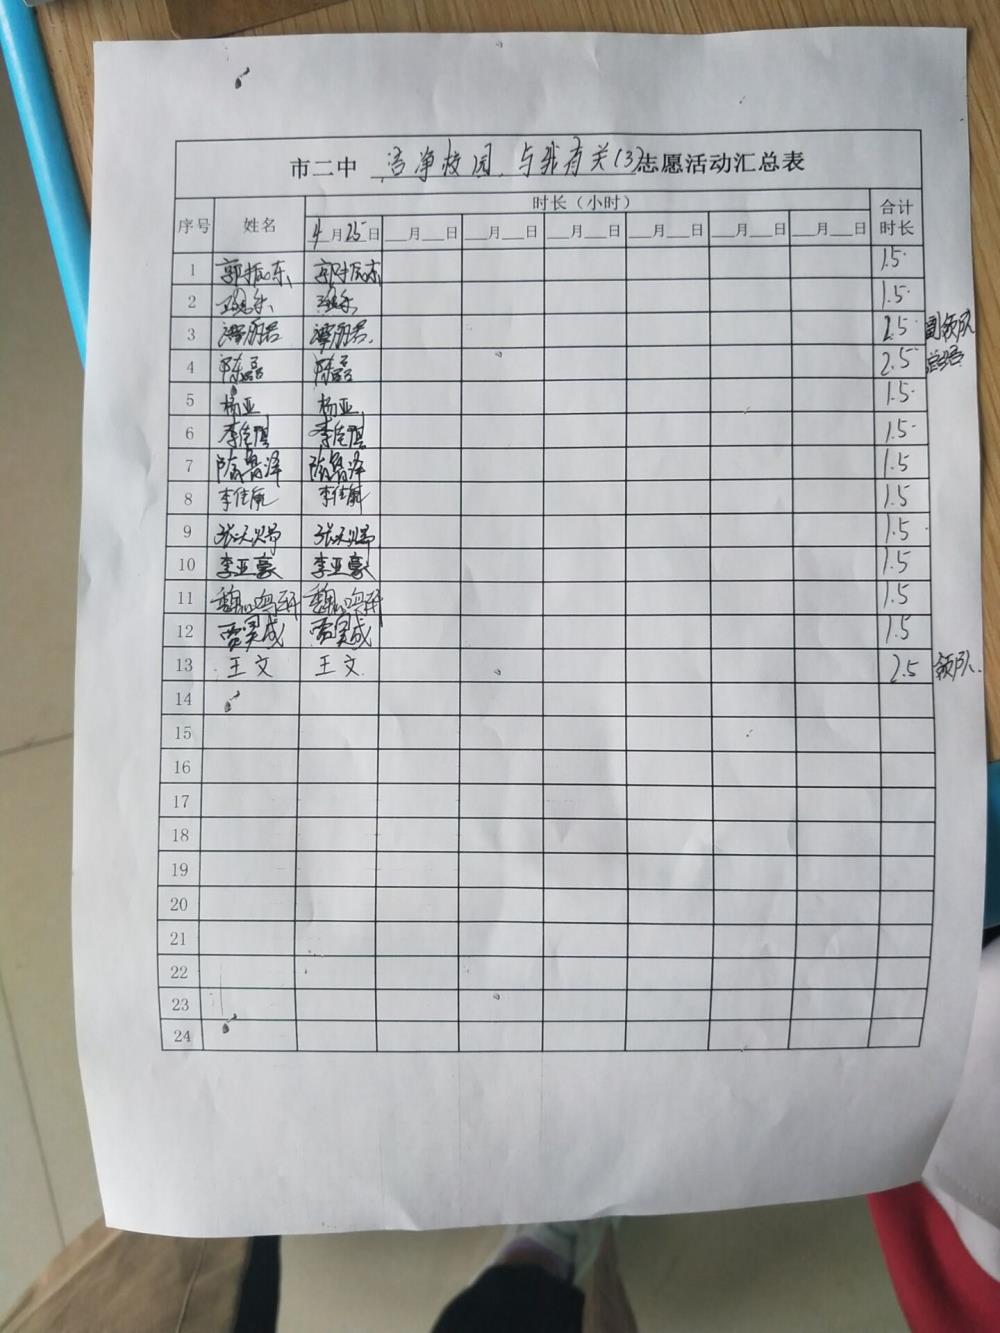 市二中 洁净校园，与我有关(3)志愿活动汇总表
序号 姓名 时长（小时） 合计时长
4月25日 __月__日 __月__日 __月__日 __月__日 __月__日 __月__日
1 郭振东 郭振东 1.5
2 1.5
3 2.5 副领队
4 陈磊 陈磊 2.5 总结
5 杨亚 杨亚 1.5
6 李佳琪 李佳琪 1.5
7 陈鲁泽 陈鲁泽 1.5
8 李佳航 李佳航 1.5
9 1.5
10 李亚豪 李亚豪 1.5
11 魏鸣研 魏鸣研 1.5
12 贾昊成 贾昊成 1.5
13 王文 王文 2.5 领队
14
15
16
17
18
19
20
21
22
23
24